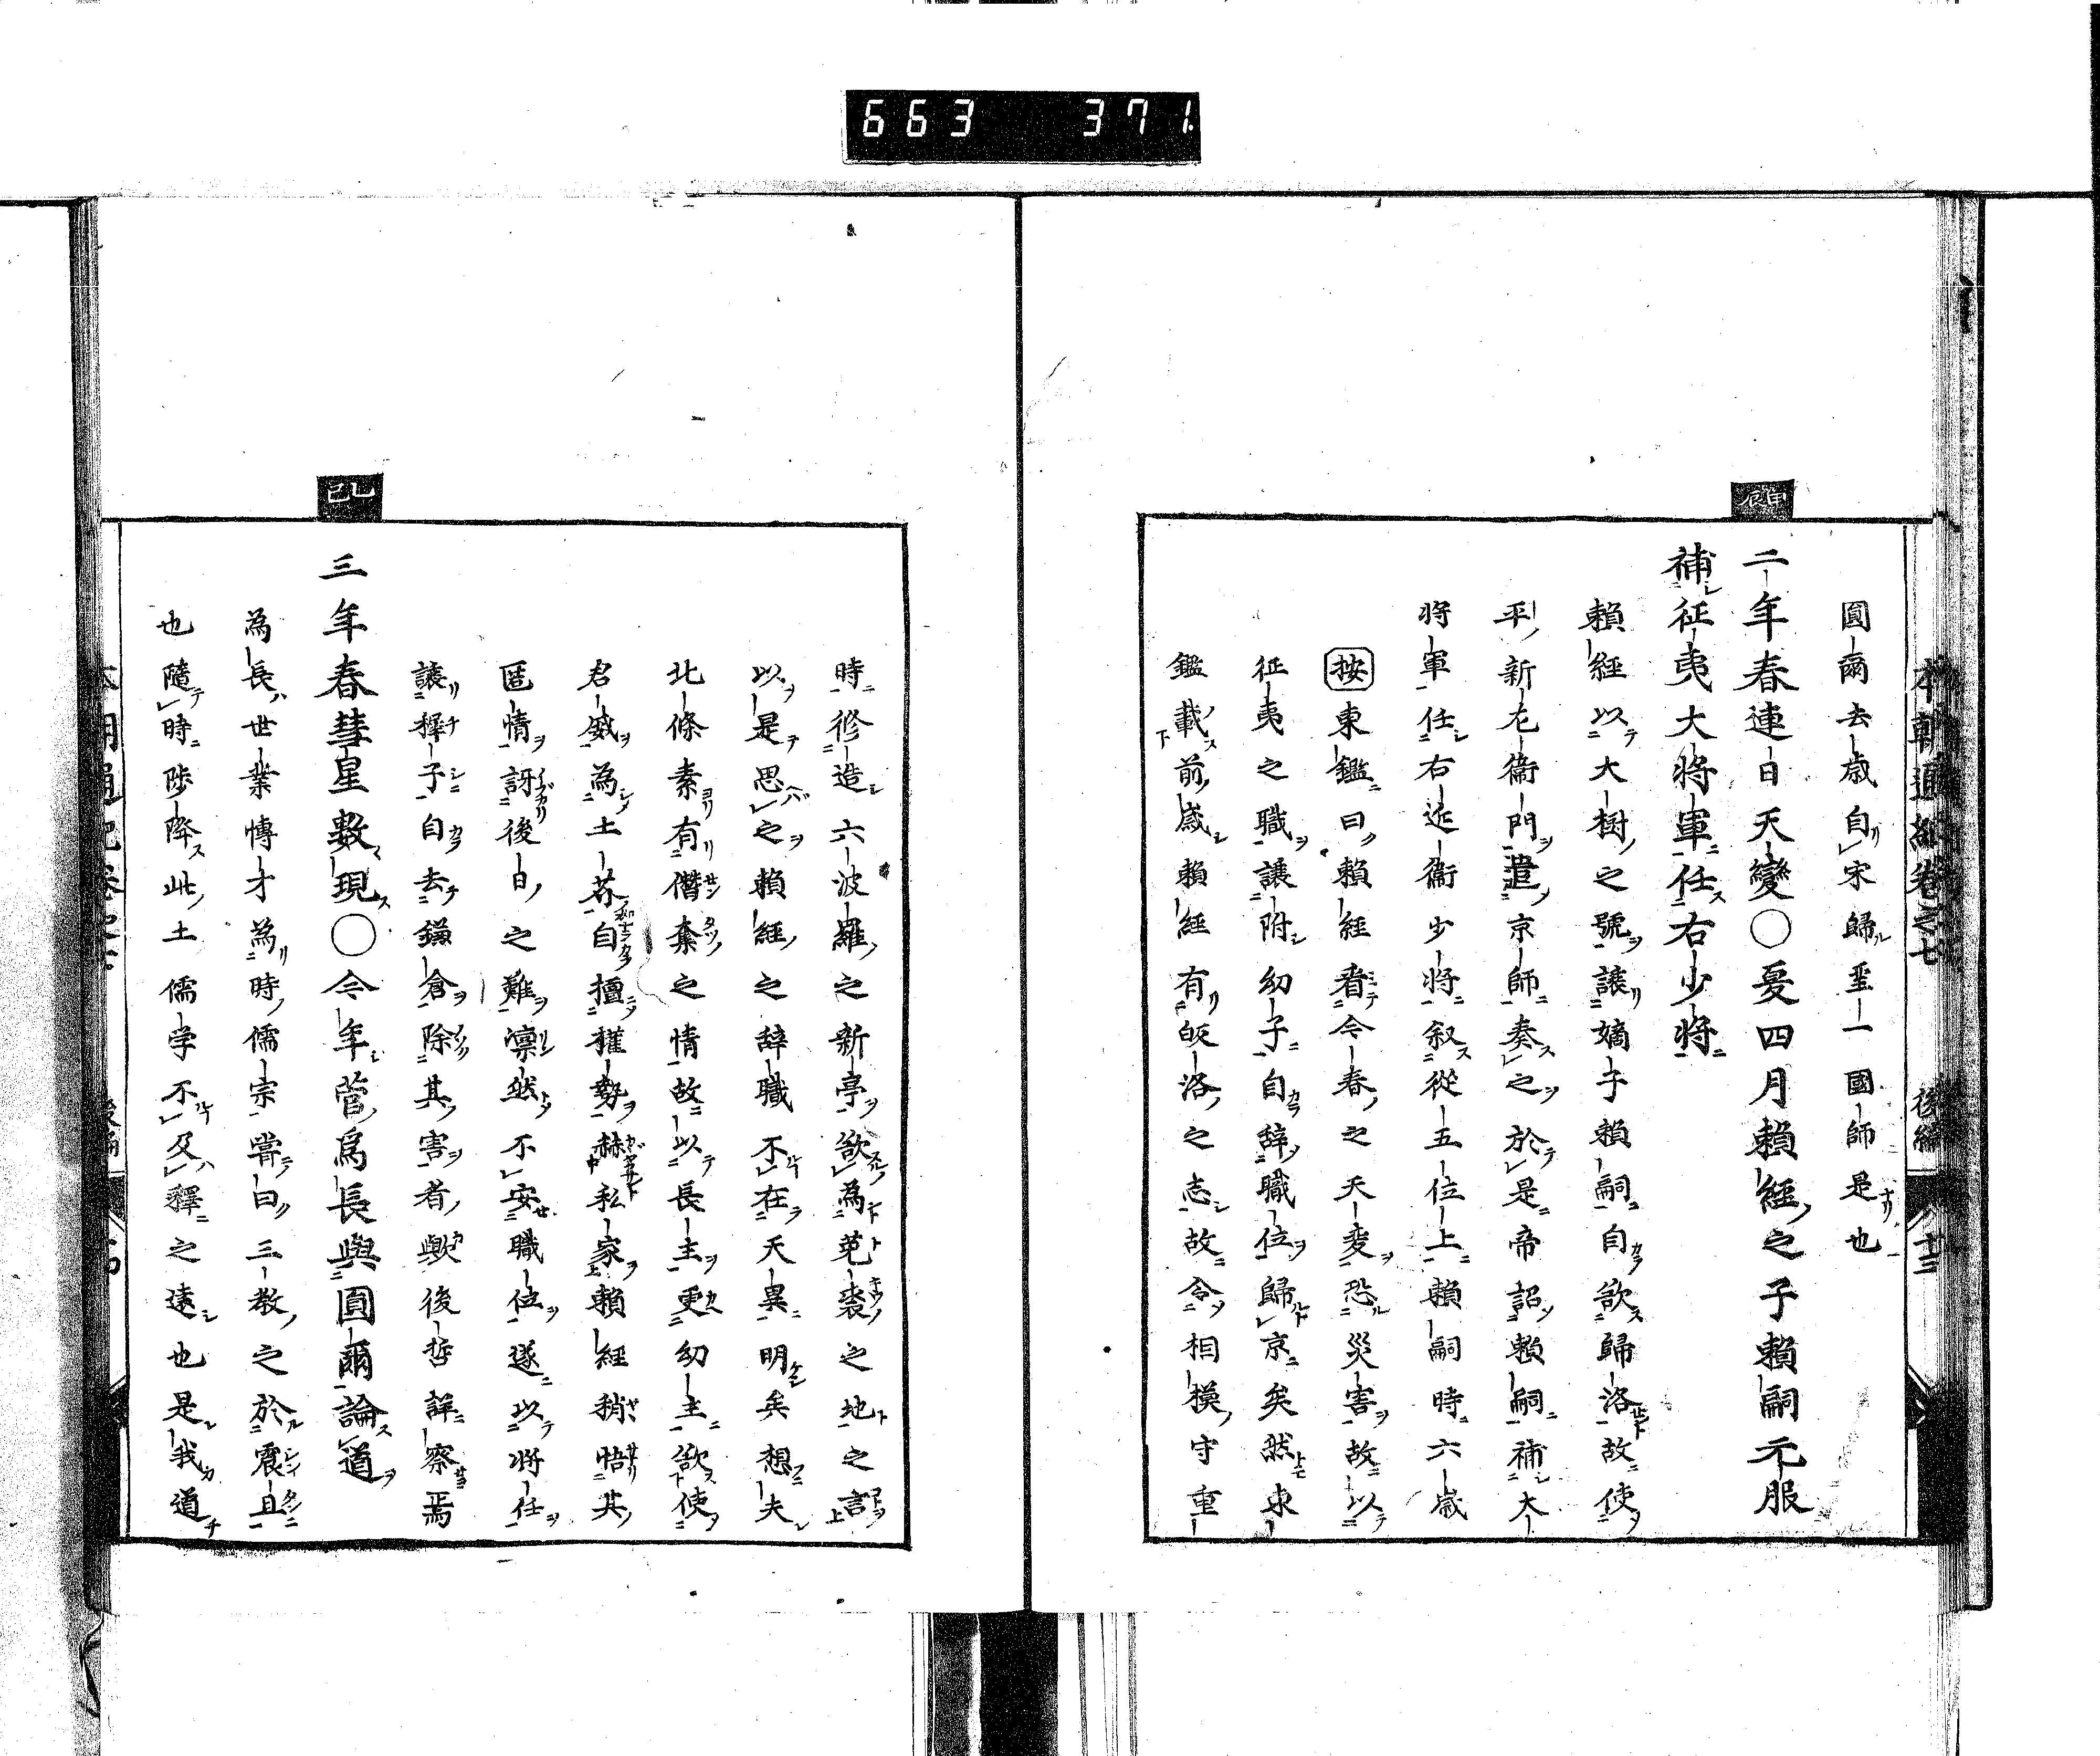 663 371
本朝通紀卷之七 後編 十三
圓爾去歳自宋歸聖一國師是也
甲辰
二年春連日天變〇夏四月賴經之子賴嗣元服
補征夷大將軍任右少將
賴經以大樹之號讓嫡子賴嗣自欲歸洛故使
平新左衞門遣京師奏之於是帝詔賴嗣補大
將軍任右近衞少將叙從五位上賴嗣時六歳
按東鑑曰賴經看今春之天変恐災害故以
征夷之職讓附幼子自辞職位歸京矣然東
鑑載前歳賴經有皈洛之志故令相模守重
時修造六波羅之新亭欲為菟裘之地之言
以是思之賴經之辞職不在天異明矣想夫
北條素有僭奪之情故以長主更幼主欲使
君威為土芥自擅權勢赫私家賴經稍悟其
匿情訝後日之難凛然不安職位遂以将任
讓擇子自去鎌倉除其害者歟後哲詳察焉
乙巳
三年春彗星數現〇今年菅為長與圓爾論道
為長世業博才為時儒宗嘗曰三教之於震旦
也隨時陟降此土儒学不及釋之遠也是我道